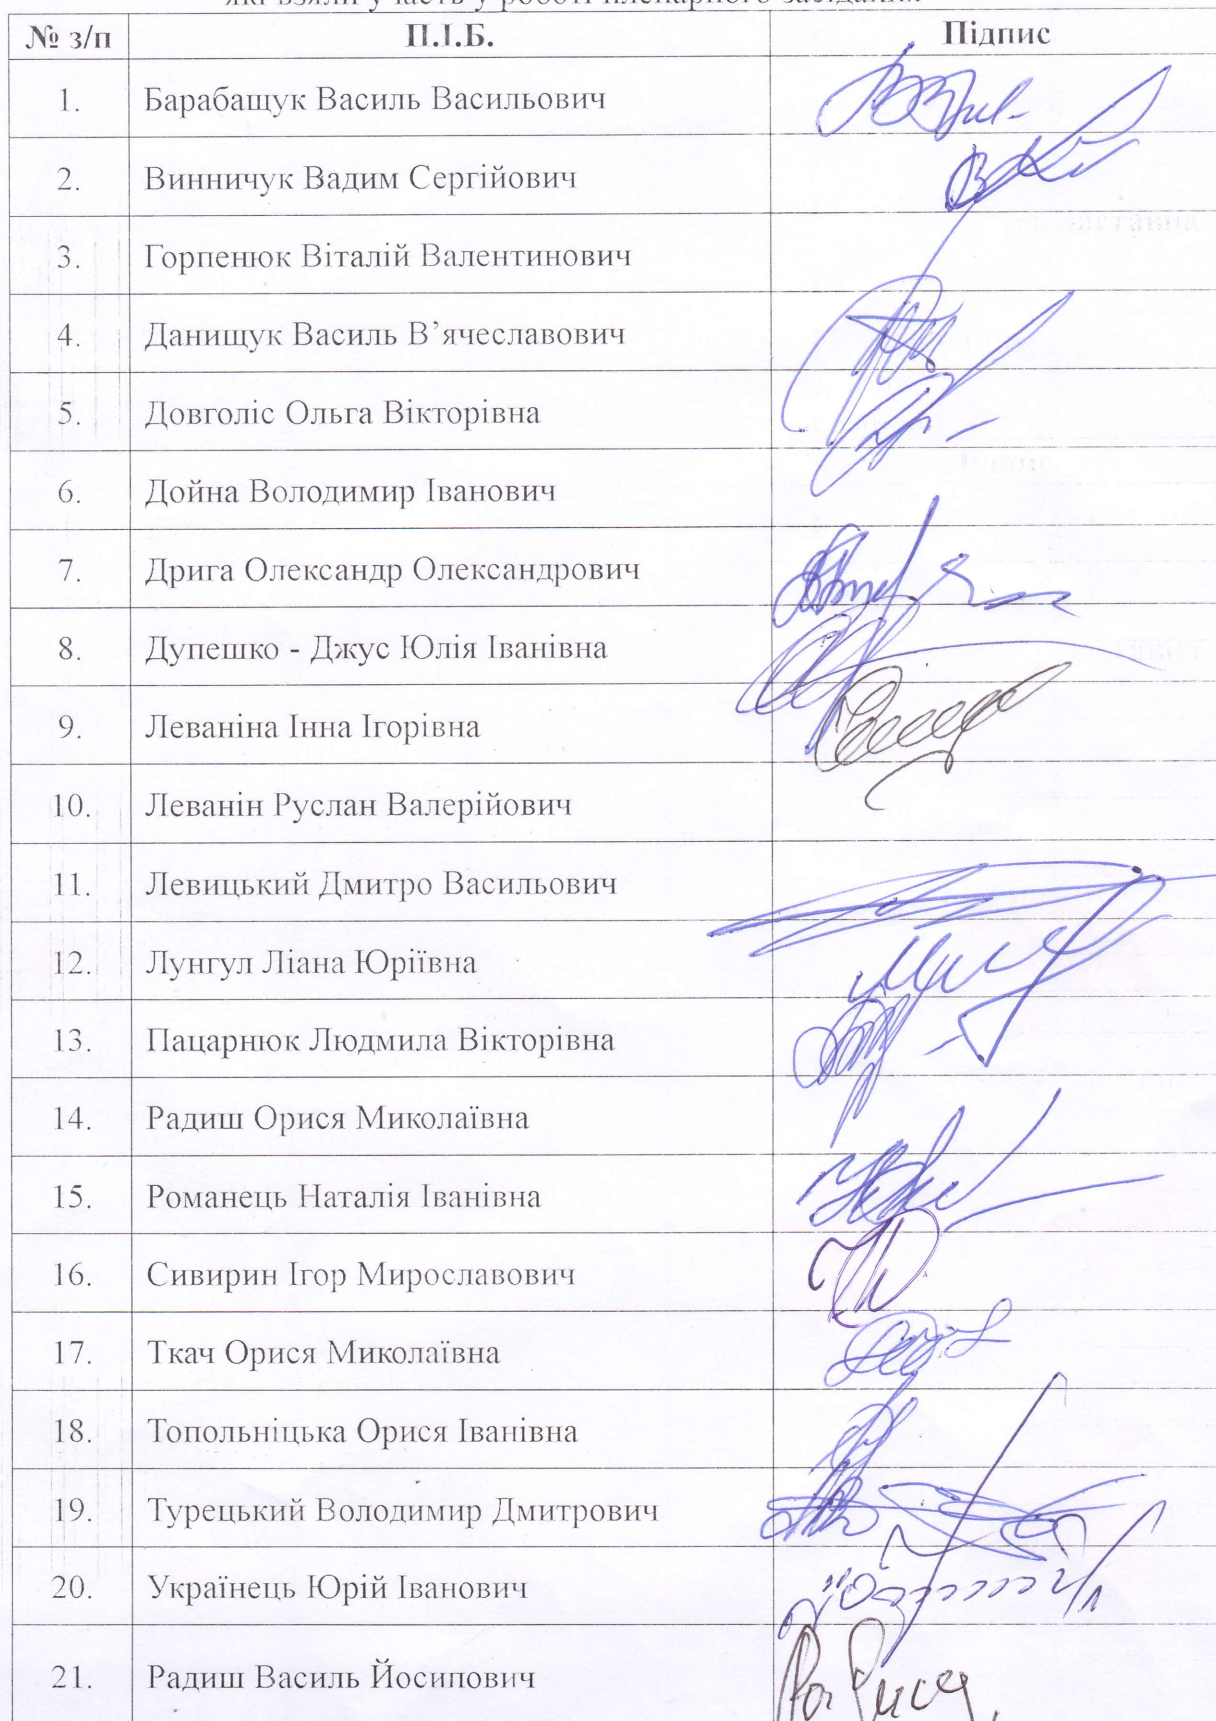 які взяли участь у роботі пленарного засідання
№ з/п П.І.Б. Підпис
1. Барабащук Василь Васильович
2. Винничук Вадим Сергійович
3. Горпенюк Віталій Валентинович
4. Данищук Василь В’ячеславович
5. Довголіс Ольга Вікторівна
6. Дойна Володимир Іванович
7. Дрига Олександр Олександрович
8. Дупешко - Джус Юлія Іванівна
9. Леваніна Інна Ігорівна
10. Леванін Руслан Валерійович
11. Левицький Дмитро Васильович
12. Лунгул Ліана Юріївна
13. Пацарнюк Людмила Вікторівна
14. Радиш Орися Миколаївна
15. Романець Наталія Іванівна
16. Сивирин Ігор Мирославович
17. Ткач Орися Миколаївна
18. Топольніцька Орися Іванівна
19. Турецький Володимир Дмитрович
20. Українець Юрій Іванович
21. Радиш Василь Йосипович